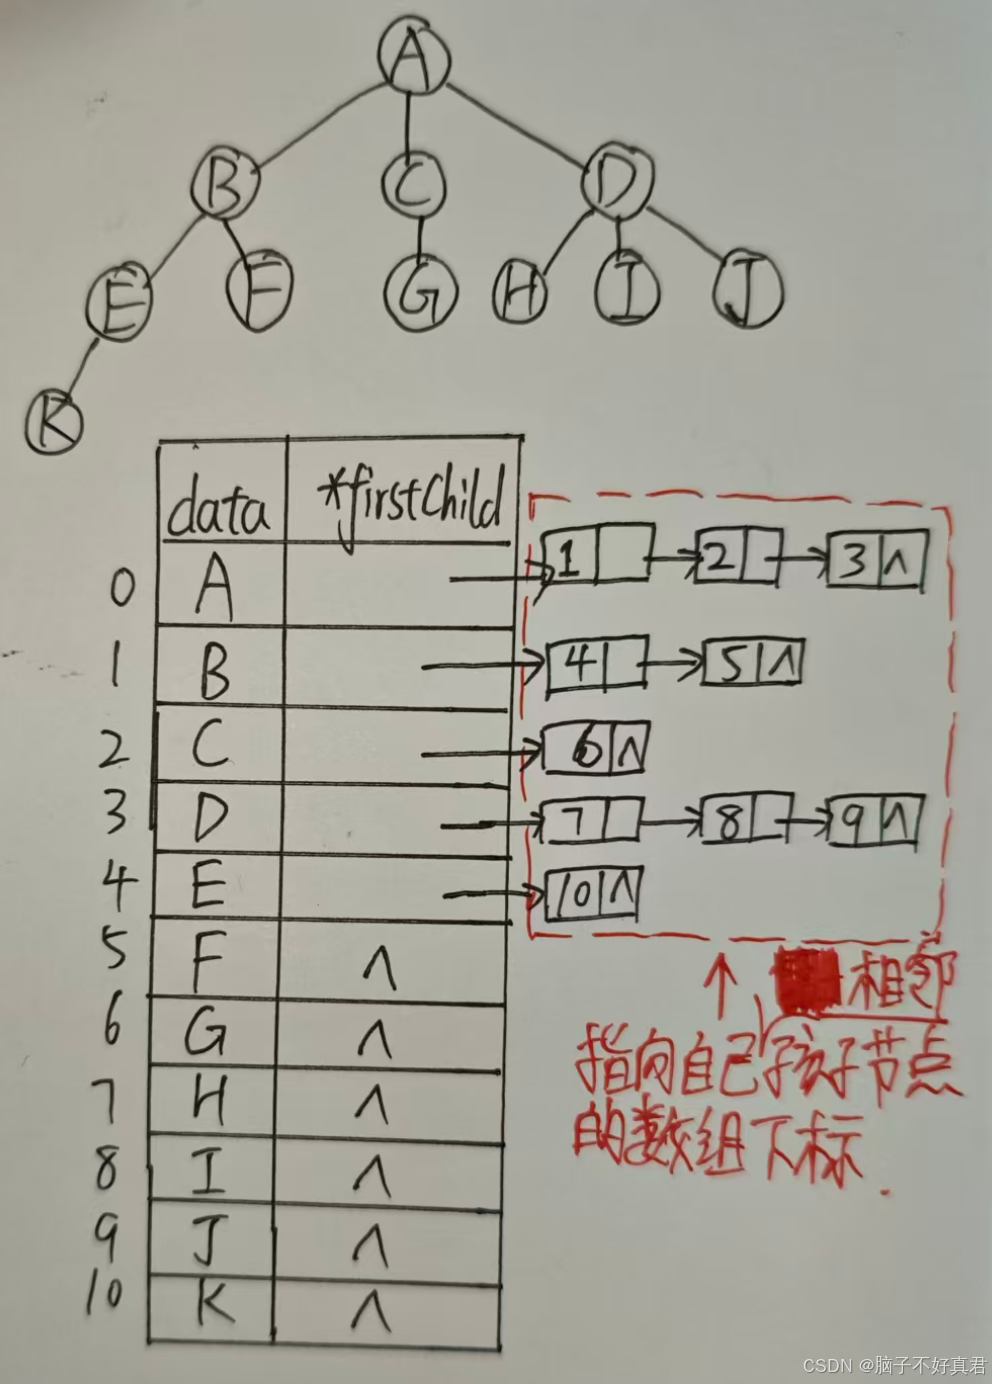 A
B C D
E F G H I J
K
data *firstChild
0 A 1 2 3 ∧
1 B 4 5 ∧
2 C 6 ∧
3 D 7 8 9 ∧
4 E 10 ∧
5 F ∧
6 G ∧
7 H ∧
8 I ∧
9 J ∧
10 K ∧
↑ 相邻
指向自己孩子节点
的数组下标.
CSDN @脑子不好真君